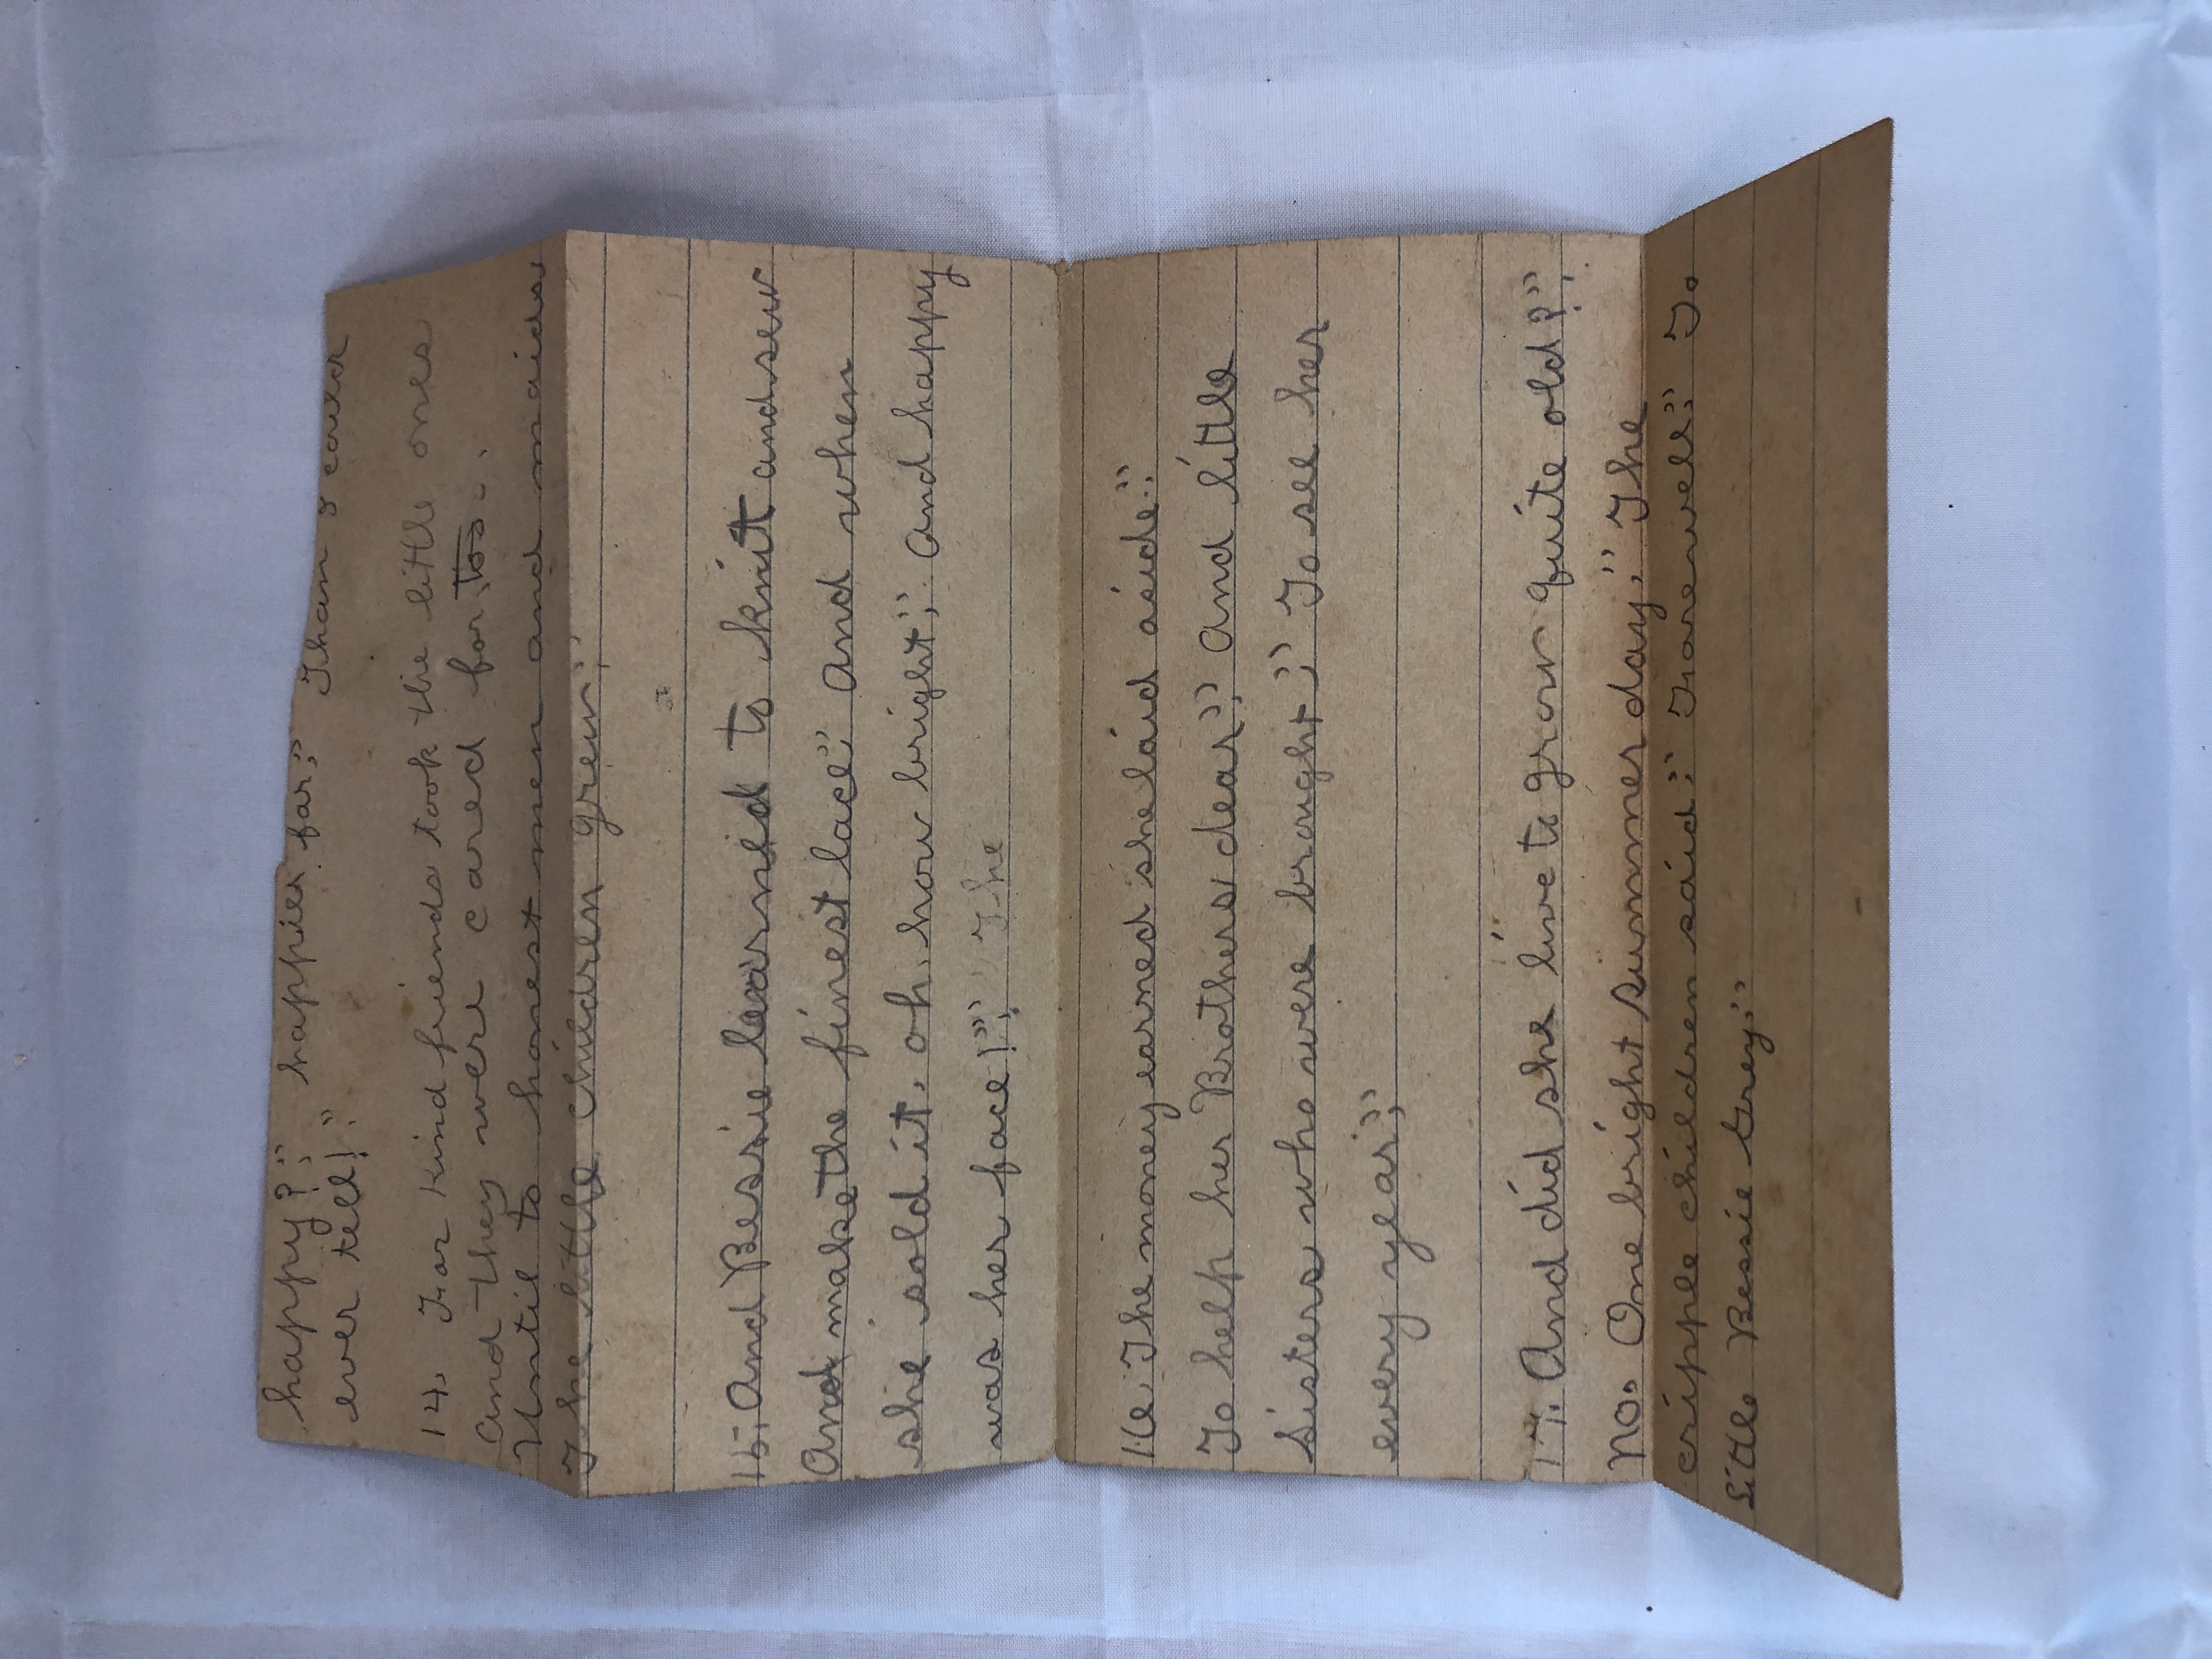 happy?;" happier far;" Than I could
ever tell!;"
14. For Kind friends took the little ones
And they were cared for, too..
Until to honest men and maids
The little children grew;"
15. And Bessie learned to knit and sew
And make the finest lace;" And when
she sold it. oh. how bright;" And happy
was her face!";" The
16. The money earned she laid aside;"
To help her Brothers dear;" And little
Sisters who were brought;" To see her
every year;"
17. And did she live to grow quite old?;"
No. One bright summer day;" The
cripple children said;" Farewell;" To
little Bessie Grey;"